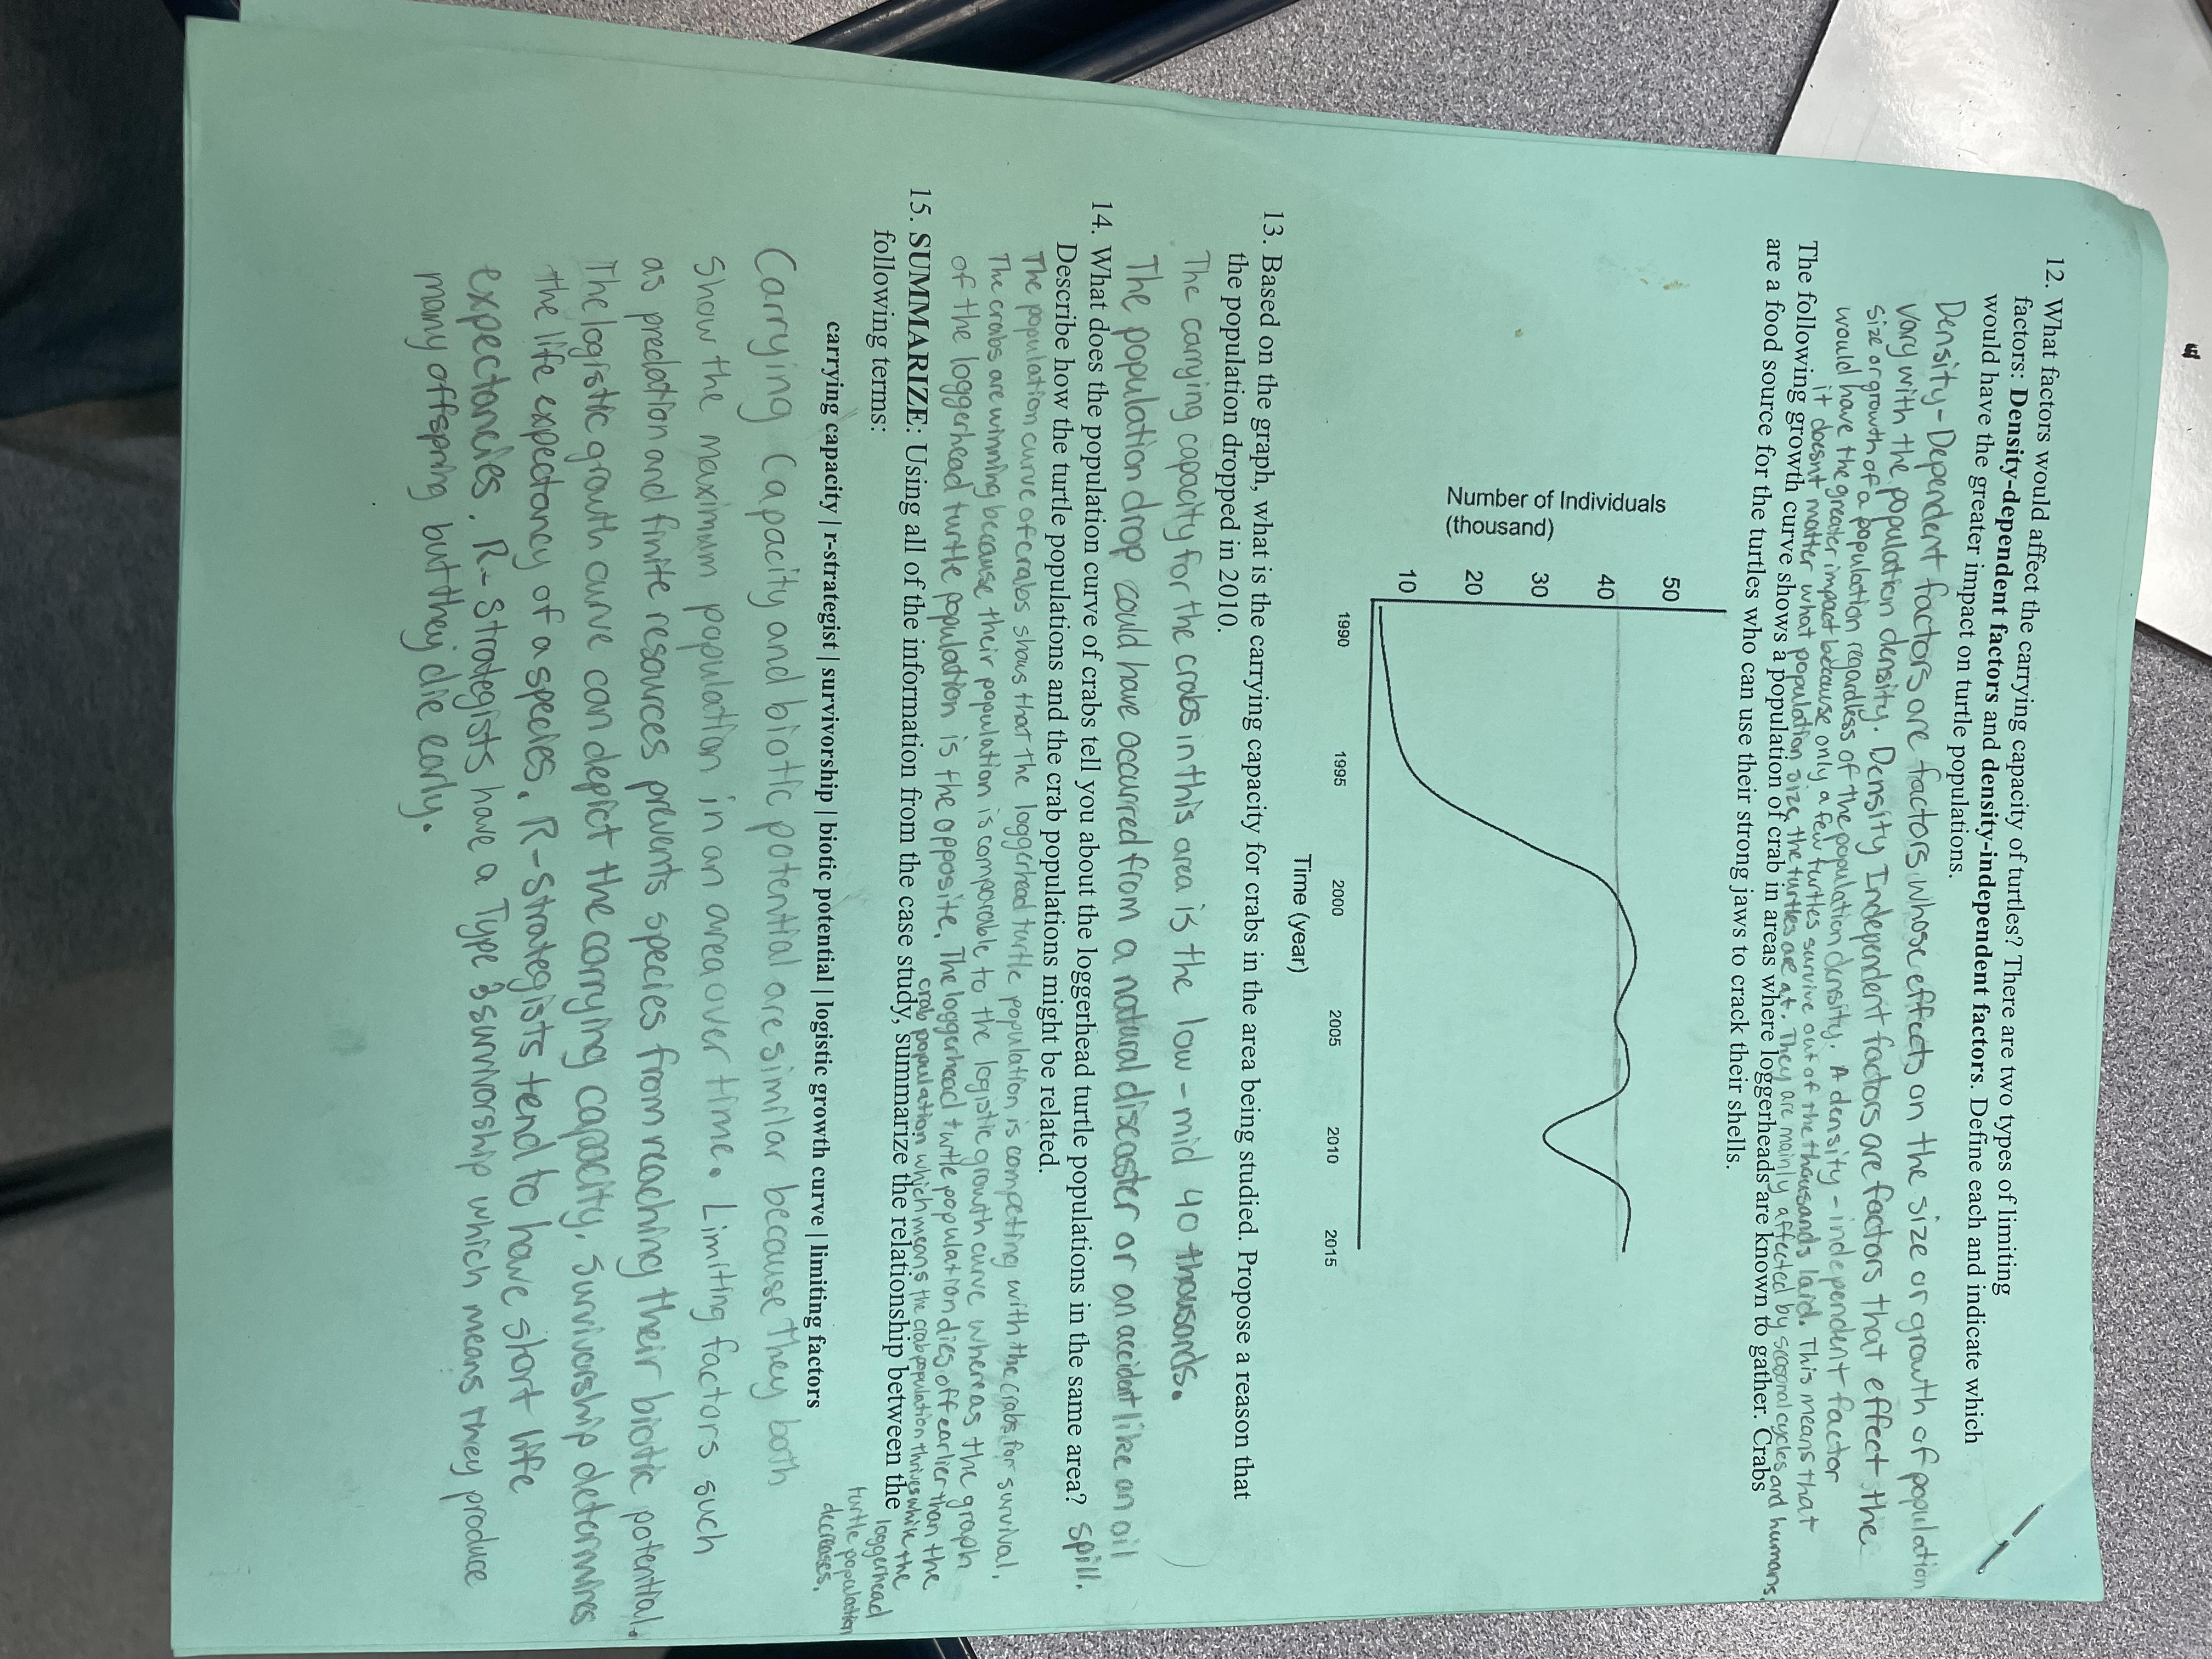 12. What factors would affect the carrying capacity of turtles? There are two types of limiting
factors: Density-dependent factors and density-independent factors. Define each and indicate which
would have the greater impact on turtle populations.
Density-Dependent factors are factors whose effects on the size or growth of population
vary with the population density. Density Independent factors are factors that effect the
size or growth of a population regardless of the population density. A density-independent factor
would have the greater impact because only a few turtles survive out of the thousands laid. This means that
it doesnt matter what population size the turtles are at. They are mainly affected by seasonal cycles and humans.
The following growth curve shows a population of crab in areas where loggerheads are known to gather. Crabs
are a food source for the turtles who can use their strong jaws to crack their shells.
Number of Individuals
(thousand)
50
40
30
20
10
1990
1995
2000
2005
2010
2015
Time (year)
13. Based on the graph, what is the carrying capacity for crabs in the area being studied. Propose a reason that
the population dropped in 2010.
The carrying capacity for the crabs in this area is the low-mid 40 thousands.
The population drop could have occurred from a natural discaster or an accident like an oil
spill.
14. What does the population curve of crabs tell you about the loggerhead turtle populations in the same area?
Describe how the turtle populations and the crab populations might be related.
The population curve of crabs shows that the loggerhead turtle population is competing with the crabs for survival.
The crabs are winning because their population is comparable to the logistic growth curve whereas the graph
of the loggerhead turtle population is the opposite. The loggerhead turtle population dies off earlier than the
crab population which means the crab population thrives while the
loggerhead
turtle population
decreases.
15. SUMMARIZE: Using all of the information from the case study, summarize the relationship between the
following terms:
carrying capacity | r-strategist | survivorship | biotic potential | logistic growth curve | limiting factors
Carrying Capacity and biotic potential are similar because they both
show the maximum population in an area over time. Limiting factors such
as predation and finite resources prevents species from reaching their biotic potential.
The logistic growth curve can depict the carrying capacity. Survivorship determines
the life expectancy of a species. R-strategists tend to have short life
expectancies. R-strategists have a Type 3 survivorship which means they produce
many offspring but they die early.